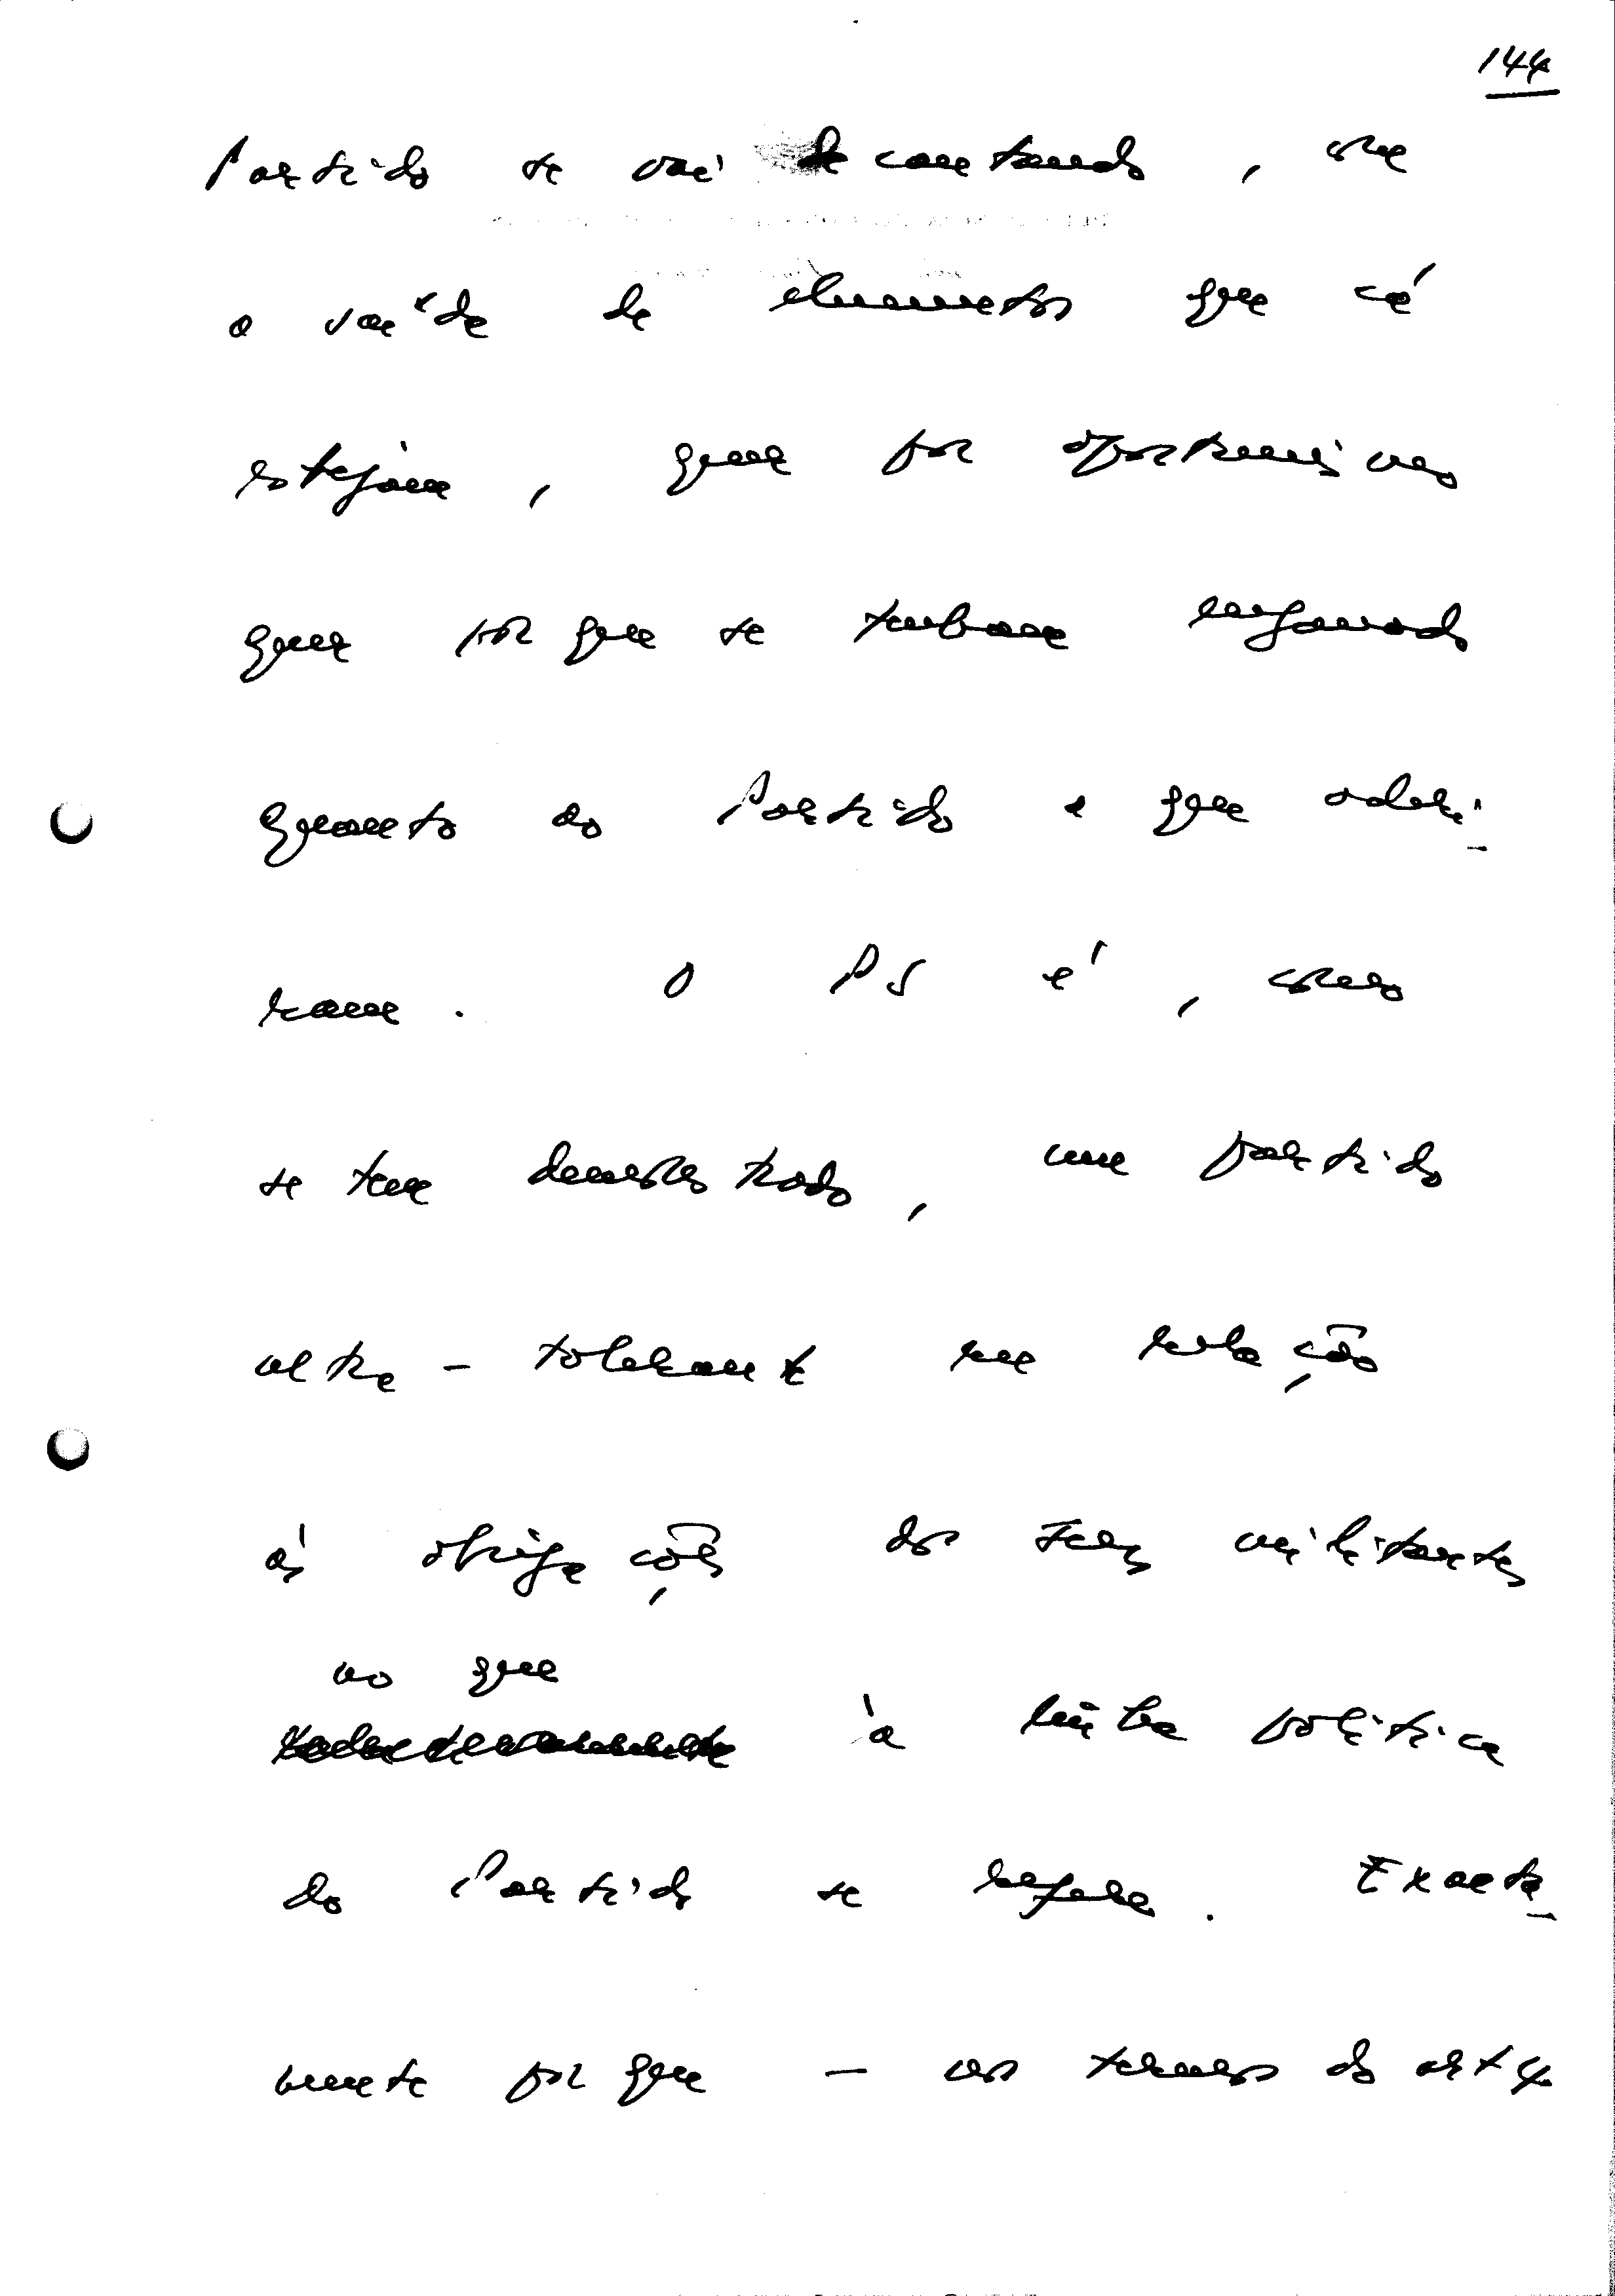 144
Partido se vai decantando, com
a saída de elementos que cá
estejam, quer por oportunismo
quer porque se tenham enganado
quanto ao Partido a que aderi-
ram. O PS é, como
se tem demonstrado, um partido
ultra-tolerante em relação
às obrigações dos seus militantes
no que
à linha política
do Partido se refere. Exacta-
mente porque - nos termos do art 4